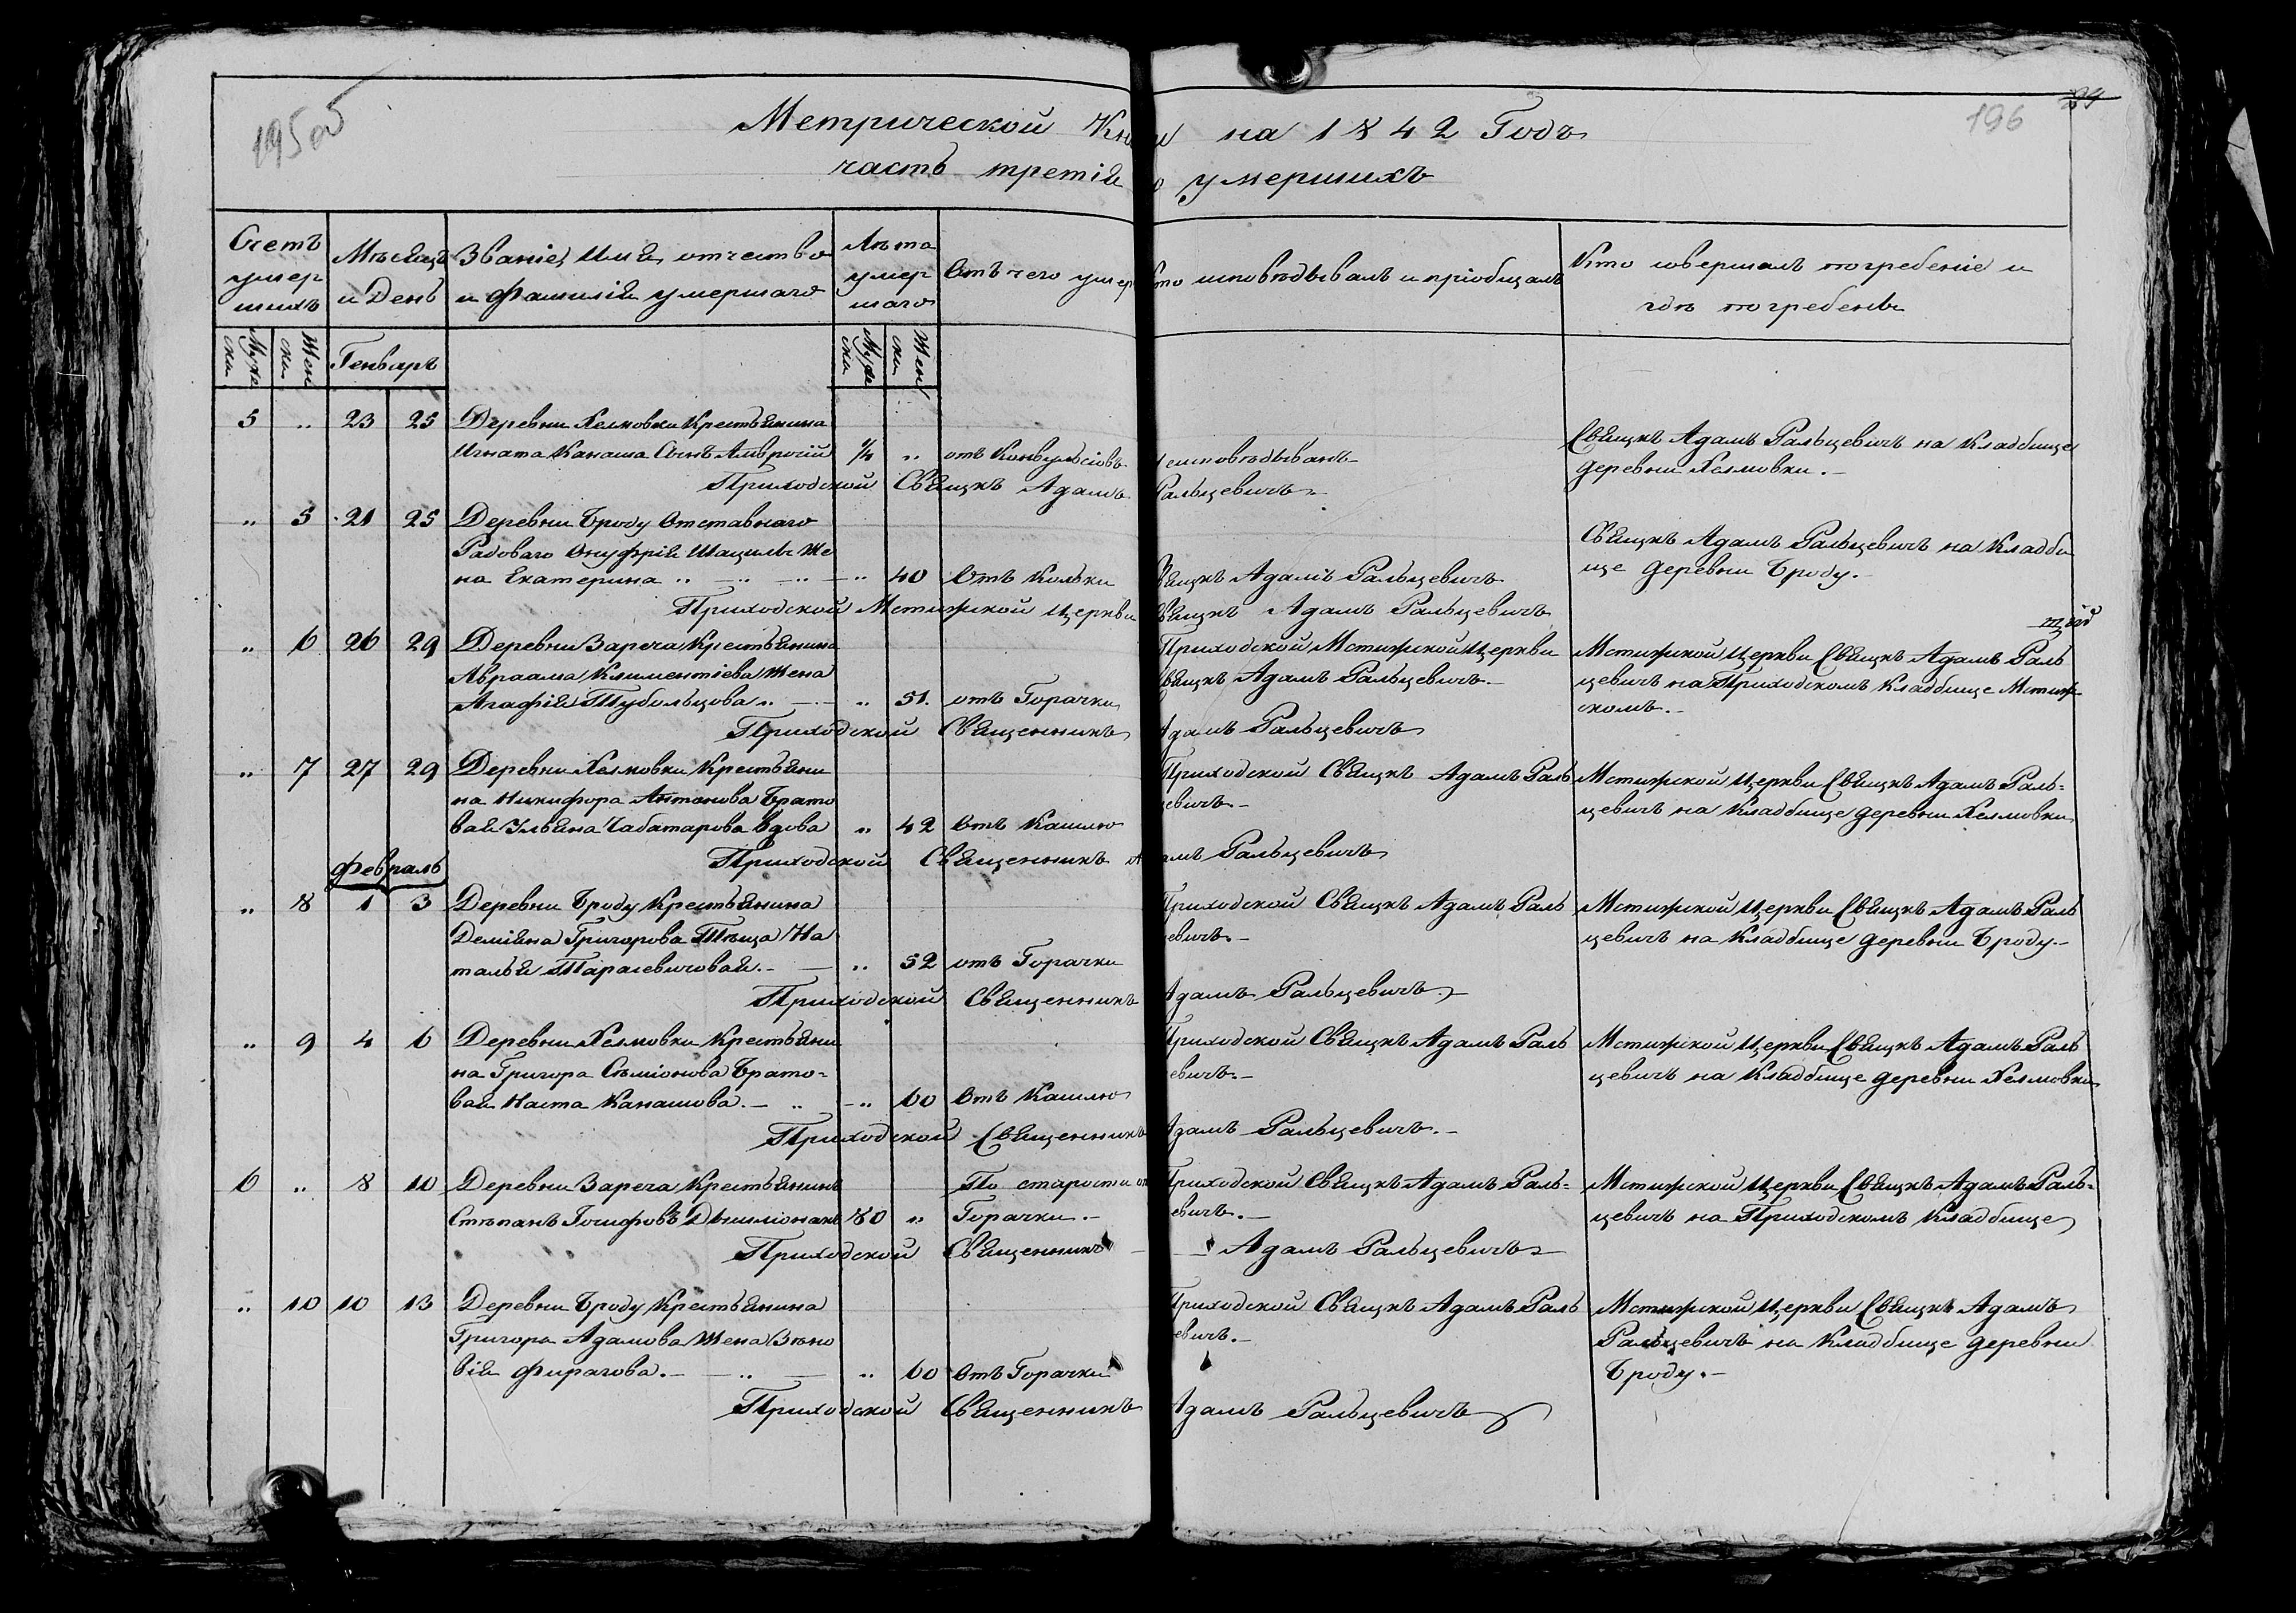 195об
196
Метрической Кни и на 1842 Годъ
часть третія о умершихъ
Счетъ умер шихъ
Мѣсяцъ и День
Званіе, Имя, отчество и Фамилія умершаго
Лѣта умер шаго
Отъ чего умер
Кто исповѣдывалъ и пріобщалъ
Кто совершалъ погребеніе и гдѣ погребенъ
Муже ска
Жен ска
Генварь
Муже ска
Жен ска
5 „ 23 25 Деревни Хелмовки Крестьянина
Игната Канаша Сынъ Амвросій 1/4 „ отъ Конвульсіовъ неисповѣдыванъ
Свящкъ Адамъ Ральцевичъ на Кладбище
деревни Хелмовки.-
Приходской Свящкъ Адамъ Ральцевичъ
„ 5 21 25 Деревни Броду Отставнаго
Радоваго Онуфрія Шацилы Же
на Екатерина „ — „ — „ — „ 40 Отъ Кольки Свящкъ Адамъ Ральцевичъ
Свящкъ Адамъ Ральцевичъ на Кладби
ще деревни Броду.-
Приходской Мстижской Церкви Свящкъ Адамъ Ральцевичъ
„ 6 26 29 Деревни Зареча Крестьянина
Авраама Климентіева Жена
Агафія Тубольцова „ — „ 51. отъ Горячки
Приходской Мстижской Церкви
Свящкъ Адамъ Ральцевичъ.-
Мстижской Церкви Свящкъ Адамъ Раль
цевичъ на Приходскомъ Кладбище Мстиж-
скомъ.-
Приходской Священникъ Адамъ Ральцевичъ
„ 7 27 29 Деревни Хелмовки Крестьяни
на Никифора Антонова Брато
вая Ульяна Чабатарова вдова „ 42 Отъ Кашлю
Приходской Свящкъ Адамъ Раль
цевичъ-
Мстижской Церкви Свящкъ Адамъ Раль-
цевичъ на Кладбище деревни Хелмовки
Приходской Священникъ Адамъ Ральцевичъ
Февраль
„ 8 1 3 Деревни Броду Крестьянина
Деміяна Григорова Тѣща На
талья Тарасевичовая.- — „ 52 отъ Горячки
Приходской Свящкъ Адамъ Раль
цевичъ.-
Мстижской Церкви Свящкъ Адамъ Раль
цевичъ на Кладбище деревни Броду.-
Приходской Священникъ Адамъ Ральцевичъ
„ 9 4 6 Деревни Хелмовки Крестьяни
на Григора Сѣміонова Брато-
вая Наста Канашова.- „ — „ 60 Отъ Кашлю
Приходской Свящкъ Адамъ Раль
цевичъ.-
Мстижской Церкви Свящкъ Адамъ Раль
цевичъ на Кладбище деревни Хелмовки
Приходской Священникъ Адамъ Ральцевичъ.-
6 „ 8 10 Деревни Зареча Крестьянинъ
Стѣпанъ Іосифовъ 80 „ По старости от
Горачки.-
Приходской Свящкъ Адамъ Раль-
цевичъ.-
Мстижской Церкви Свящкъ Адамъ Раль-
цевичъ на Приходскомъ Кладбище
Приходской Священникъ — Адамъ Ральцевичъ
„ 10 10 13 Деревни Броду Крестьянина
Григора Адамова Жена Зѣно
вія Фирагова.- — „ — „ 60 Отъ Горачки
Приходской Свящкъ Адамъ Раль
цевичъ.-
Мстижской Церкви Свящкъ Адамъ
Ральцевичъ на Кладбище деревни
Броду.-
Приходской Священникъ Адамъ Ральцевичъ